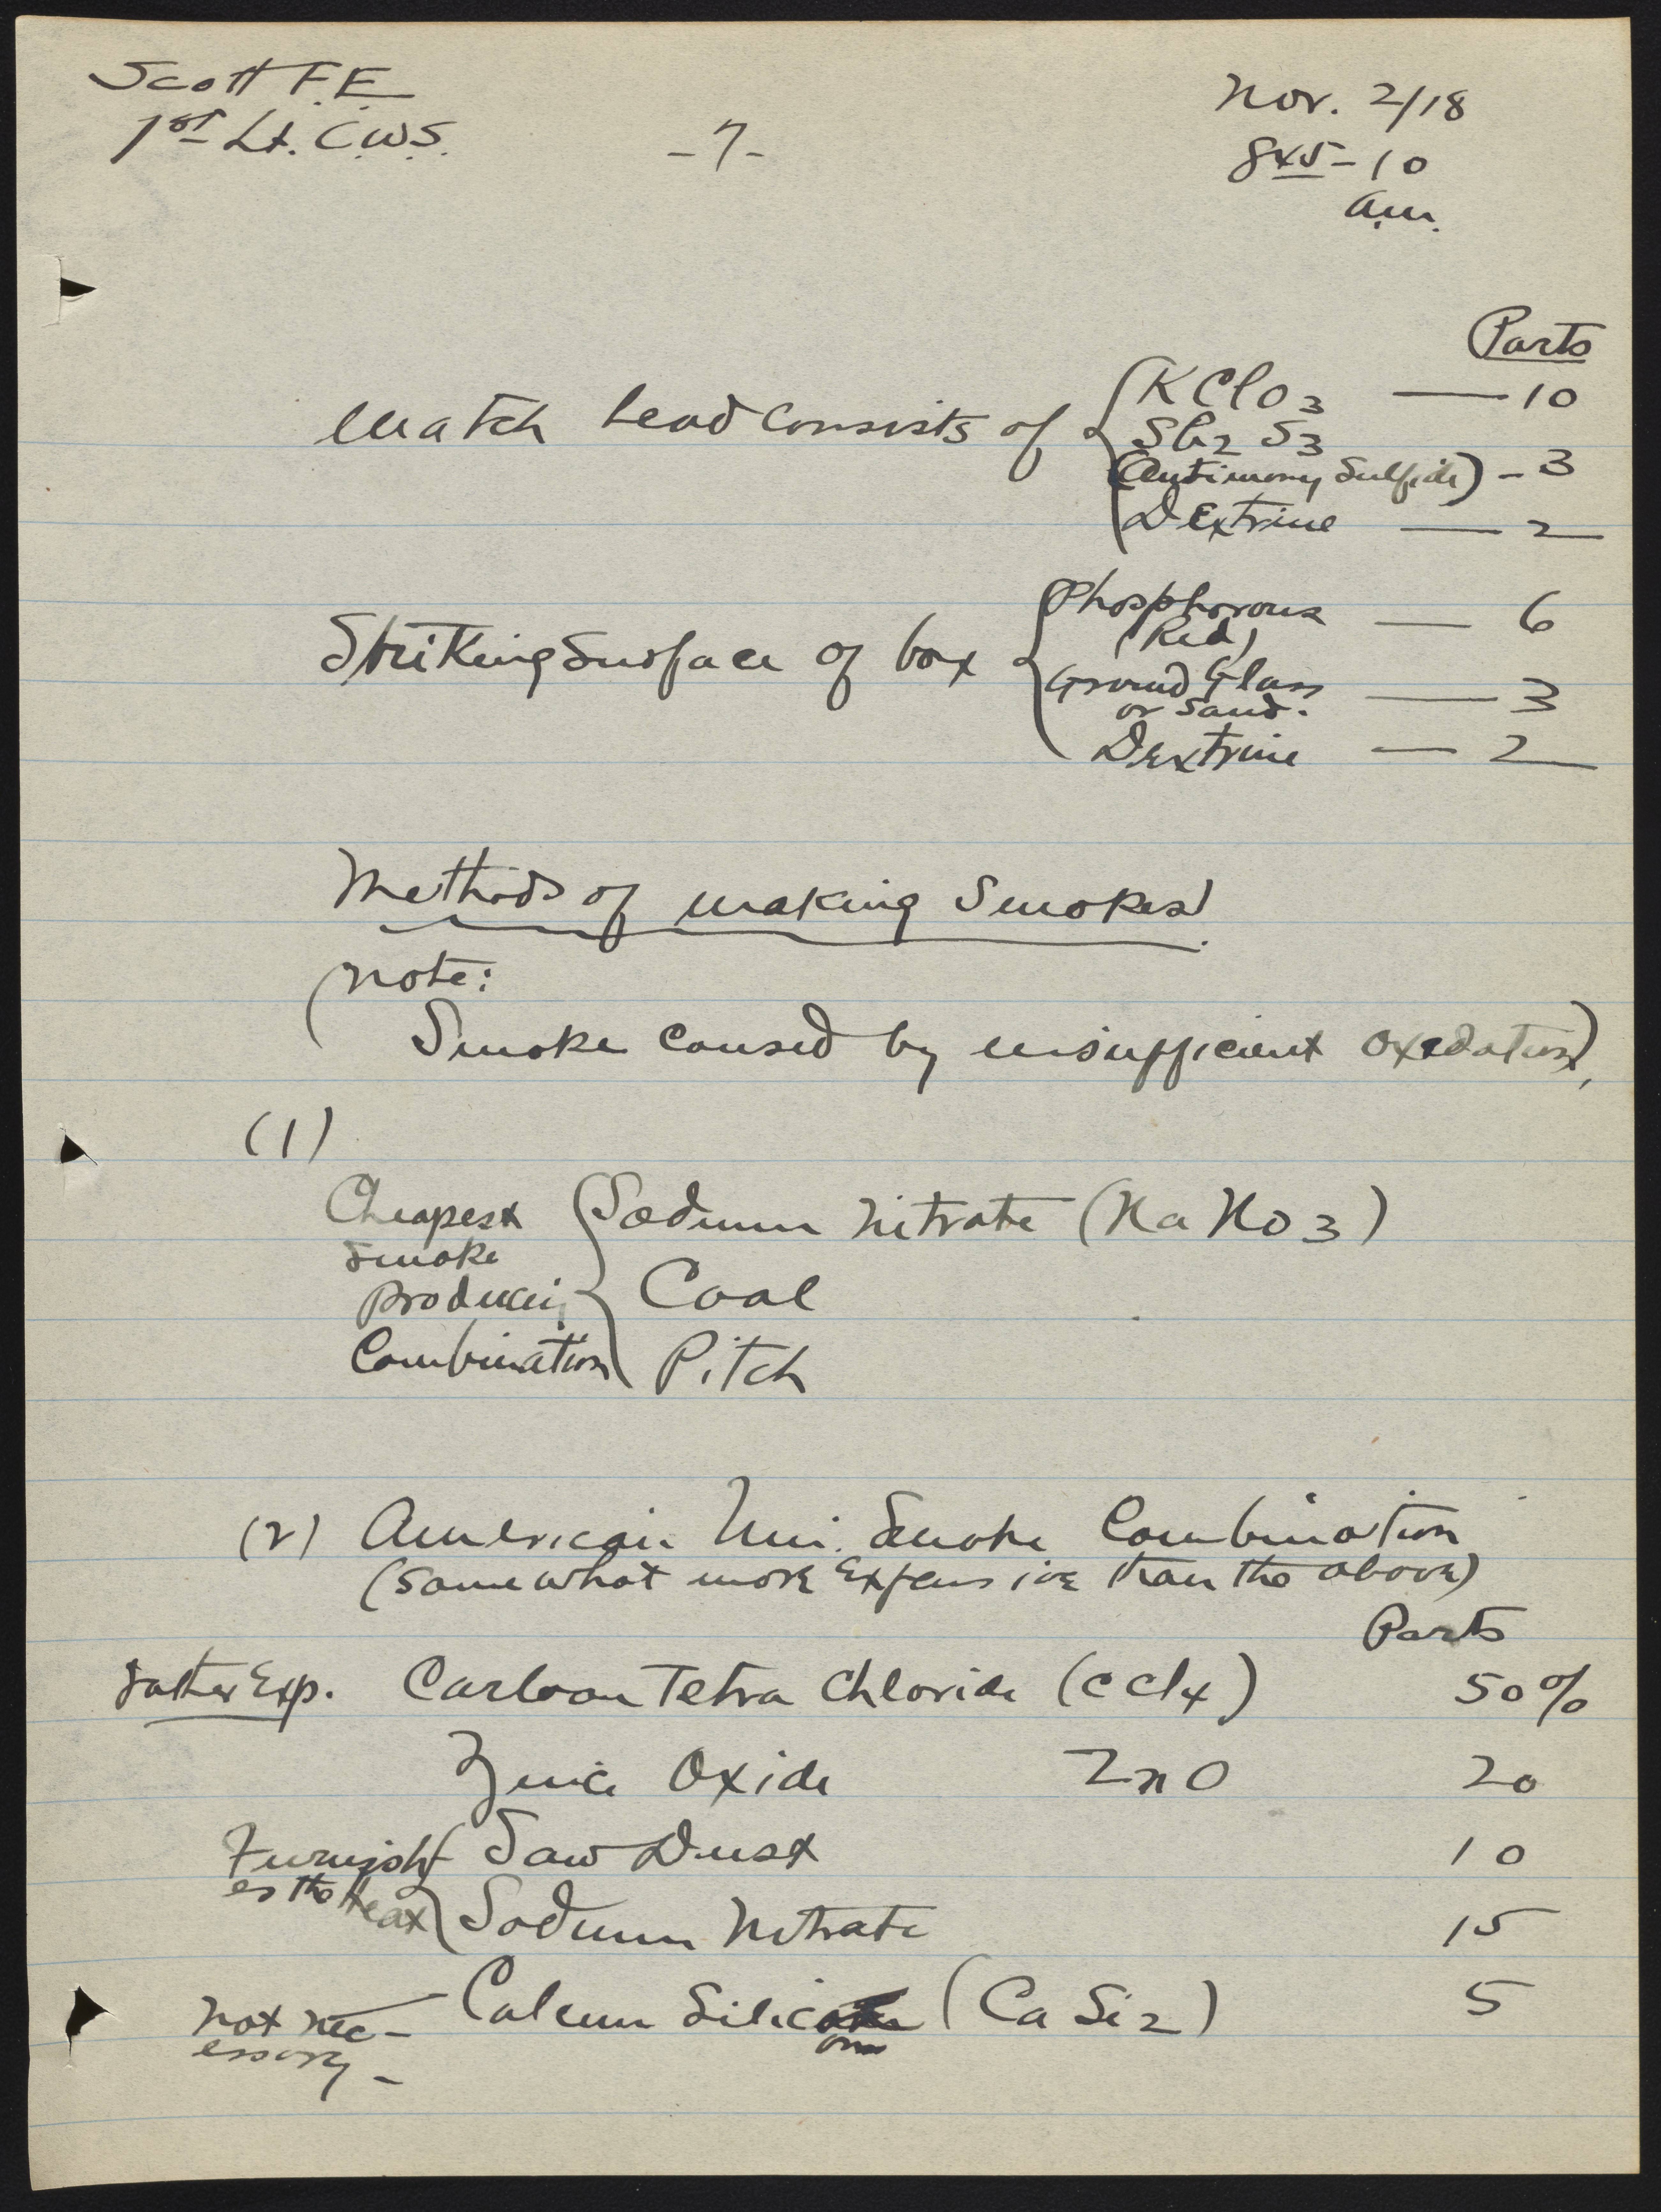 Scott F.E.
1st Lt. C.W.S.
-7-
Nov. 2/18
845-10
a.m.
Parts
Match head consists of { KClO3 — 10
Sb2 S3
(Antimony Sulfide) - 3
Dextrine — 2
Striking Surface of box { Phosphorous — 6
(Red)
Ground Glass — 3
or Sand.
Dextrine — 2
Methods of making Smokes.
(Note:
Smoke caused by insufficient oxedation),
(1)
Cheapest { Sodium Nitrate (Na NO3)
Smoke
producing Coal
Combination Pitch
(2) American Uni. Smoke Combination
(Somewhat more Expensive than the above)
Parts
rather Exp. Carbon Tetra Chloride (CCl4) 50%
Zinc Oxide ZnO 20
Furnish { Saw Dust 10
es the Heat Sodium Nitrate 15
not nec- — Calcium Silic (Ca Si2) 5
essary -